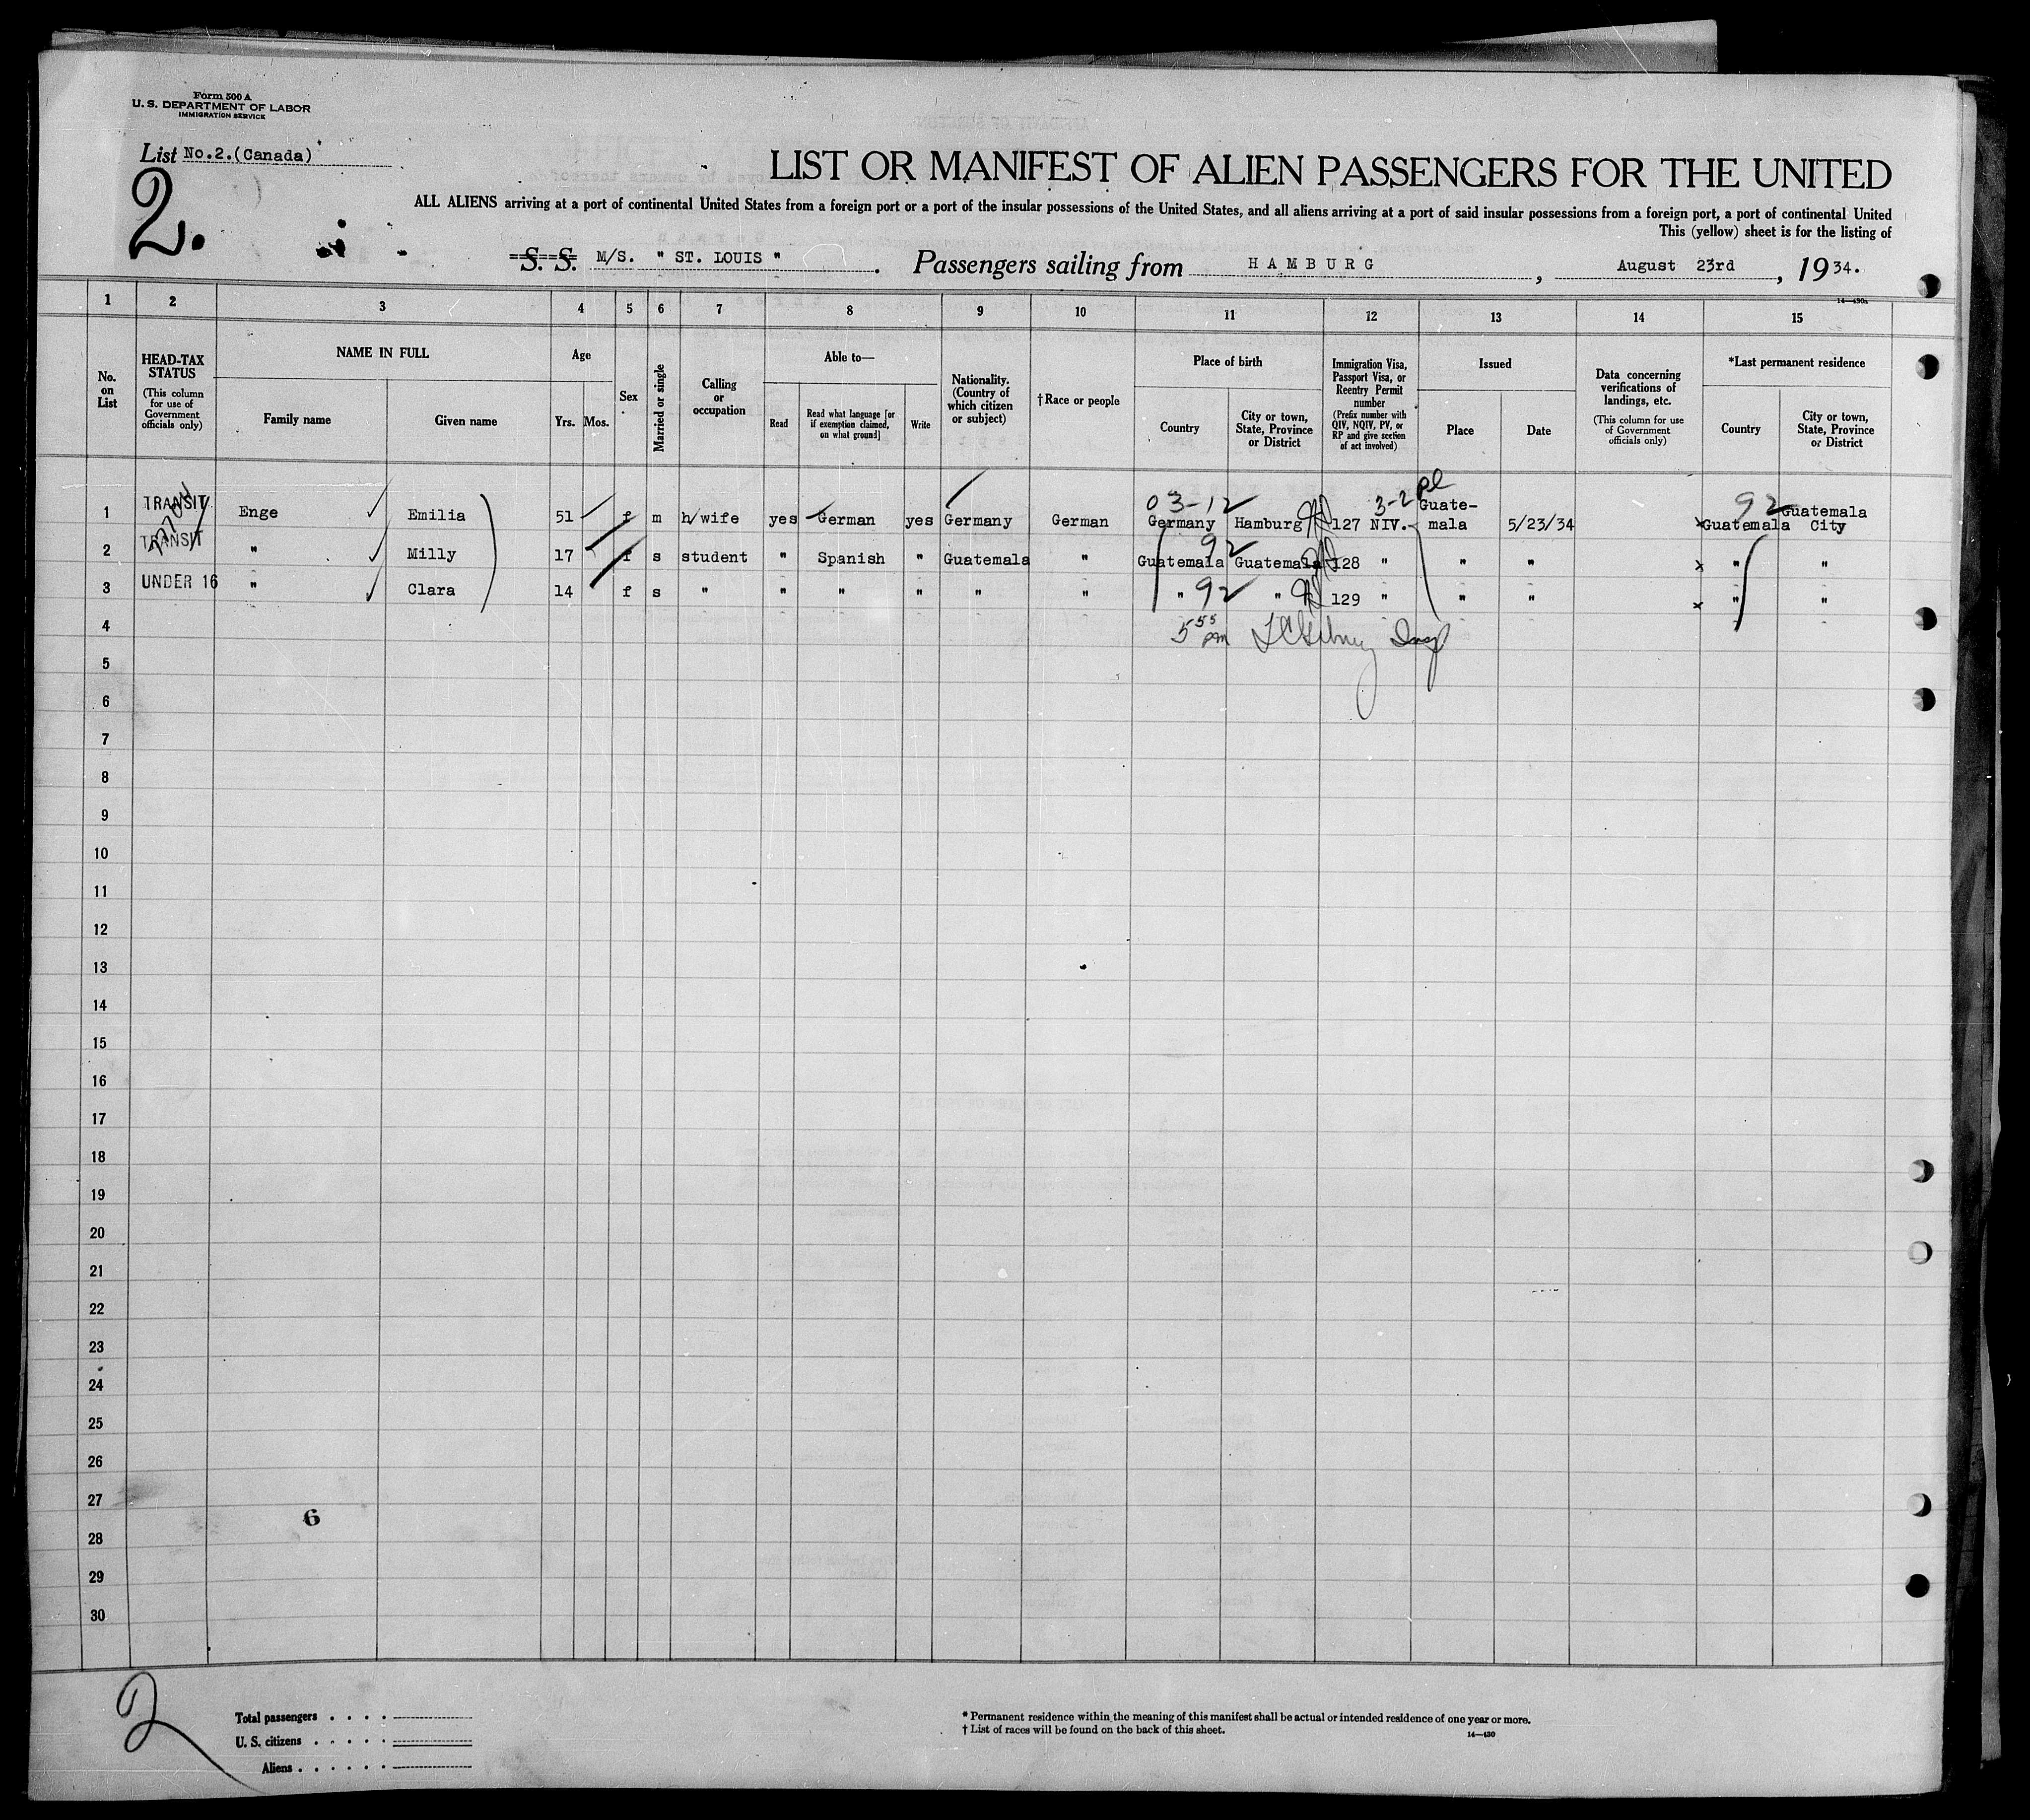 Form 500 A
U. S. DEPARTMENT OF LABOR
IMMIGRATION SERVICE
List No.2.(Canada)
2.
LIST OR MANIFEST OF ALIEN PASSENGERS FOR THE UNITED
ALL ALIENS arriving at a port of continental United States from a foreign port or a port of the insular possessions of the United States, and all aliens arriving at a port of said insular possessions from a foreign port, a port of continental United
This (yellow) sheet is for the listing of
S. S. M/S. " ST. LOUIS " . Passengers sailing from HAMBURG , August 23rd , 19 34.
14—430a
1 2 3 4 5 6 7 8 9 10 11 12 13 14 15
No. on List
HEAD-TAX STATUS
(This column for use of Government officials only)
NAME IN FULL
Family name Given name
Age
Yrs. Mos.
Sex
Married or single
Calling or occupation
Able to—
Read
Read what language [or if exemption claimed, on what ground]
Write
Nationality. (Country of which citizen or subject)
†Race or people
Place of birth
Country
City or town, State, Province or District
Immigration Visa, Passport Visa, or Reentry Permit number
(Prefix number with QIV, NQIV, PV, or RP and give section of act involved)
Issued
Place Date
Data concerning verifications of landings, etc.
(This column for use of Government officials only)
*Last permanent residence
Country
City or town, State, Province or District
03-12 3-2 pl 92
1 TRANSIT Enge Emilia 51 f m h/wife yes German yes Germany German Germany Hamburg 127 NIV. Guate-mala 5/23/34 Guatemala Guatemala City
92
2 TRANSIT " Milly 17 f s student " Spanish " Guatemala " Guatemala Guatemala 128 " " " " "
3 UNDER 16 " Clara 14 f s " " " " " " " 92 " 129 " " " " "
4 5 55 pm
5
6
7
8
9
10
11
12
13
14
15
16
17
18
19
20
21
22
23
24
25
26
27
6
28
29
30
2
Total passengers
U. S. citizens
Aliens
* Permanent residence within the meaning of this manifest shall be actual or intended residence of one year or more.
† List of races will be found on the back of this sheet.
14—430